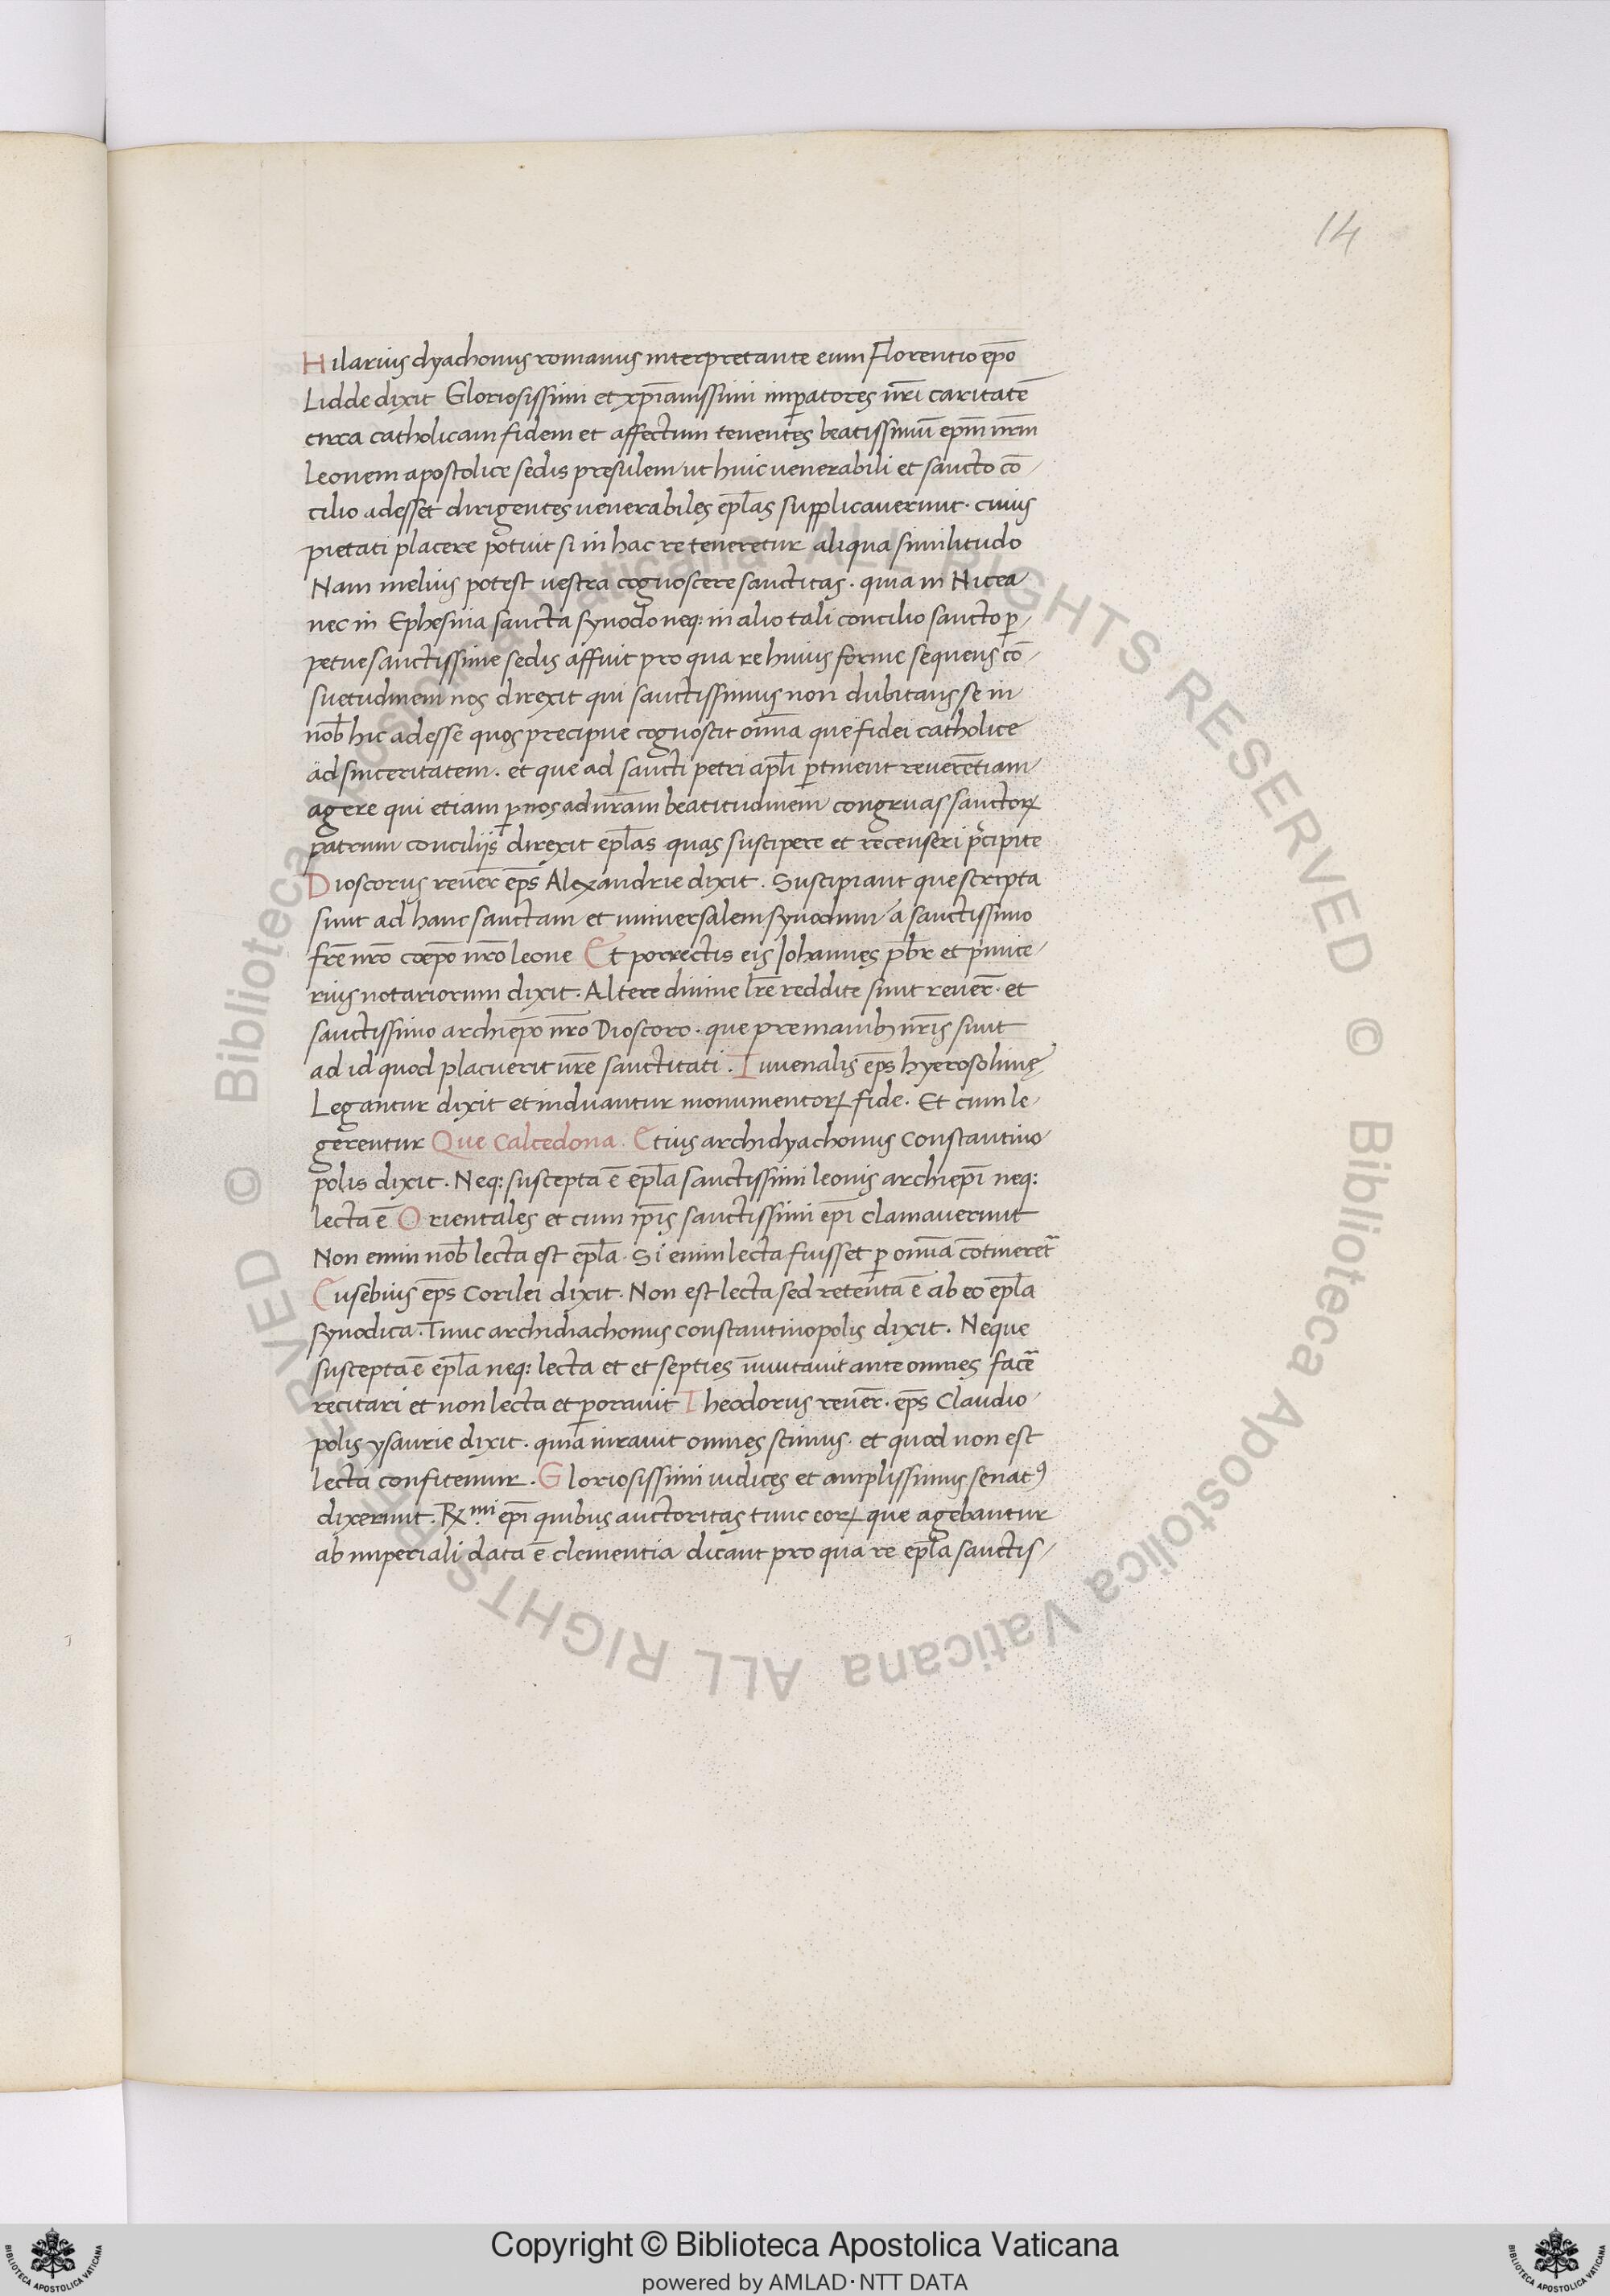 14
Hilarius dyachonus romanus interpretante eum Florentio ep̄o
Lidde dixit Gloriosissimi et xp̄ianissimi imꝑatores nr̄i caritatē
circa catholicam fidem et affectum tenentes beatissimū ep̄m nr̄m
Leonem apostolice sedis presulem ut huic uenerabili et sancto cō
cilio adesset dirigentes uenerabiles ep̄las supplicauerunt. cuius
pietati placere potuit si in hac re teneretur aliqua similitudo
Nam melius potest uestra cognoscere sanctitas. quia in Nicea
nec in Ephesina sancta synodo neq; in alio tali concilio sancto ꝑ
petue sanctissime sedis affuit pro qua re huius forme sequens cō
suetudinem nos direxit qui sanctissimus non dubitans se in
nob̄ hic adesse quos precipue cognoscit oīna que fidei catholice
ad sinceritatem. et que ad sancti petri apl̄i ꝑtinent reuerētiam
agere qui etiam ꝑ nos ad ur̄am beatitudinem congruas sanctoꝝ
patrum concilijs direxit ep̄las quas suscipere et recenseri p̄cipite
Dioscorus reuer̄ ep̄s Alexandrie dixit. Suscipiant que scripta
sunt ad hanc sanctam et uniuersalem synodum a sanctissimo
fr̄e nr̄o coep̄o nr̄o leone Et porrectis eis Johannes p̄br et primice
rius notariorum dixit. Altere diuine lr̄e reddite sunt reuer̄. et
sanctissimo archiep̄o nr̄o Dioscoro. que pre manib; nr̄is sunt
ad id quod placuerit ur̄e sanctitati. Iuuenalis ep̄s hyerosolimę
Legantur dixit et induantur monumentoꝝ fide. Et cum le
gerentur Que Calcedona. Etius archidyachonus Constantino
polis dixit. Neq; suscepta ē ep̄la sanctissimi leonis archiep̄i neq;
lecta ē Orientales et cum ip̄is sanctissimi ep̄i clamauerunt
Non enim nob̄ lecta est ep̄la. Si enim lecta fuisset ꝑ oīnia cōtineret̄
Eusebius ep̄s Corilei dixit. Non est lecta sed retenta ē ab eo ep̄la
synodica. Tunc archidiachonus constantinopolis dixit. Neque
suscepta ē ep̄la neq; lecta et et septies iurauit ante omnes facē
recitari et non lecta et ꝑiurauit Theodorus reuer̄. ep̄s Claudio
polis ysaurie dixit. quia iurauit omnes scimus. et quod non est
lecta confitemur. Gloriosissimi iudices et amplissimus senatꝰ
dixerunt. Rx̄mi ep̄i quibus auctoritas tunc eoꝝ que agebantur
ab imperiali data ē clementia dicant pro qua re ep̄la sanctis
© Biblioteca Apostolica Vaticana ALL RIGHTS RESERVED © Biblioteca Apostolica Vaticana ALL RIGHTS RESERVED
Copyright © Biblioteca Apostolica Vaticana
powered by AMLAD·NTT DATA
BIBLIOTECA APOSTOLICA VATICANA
BIBLIOTECA APOSTOLICA VATICANA